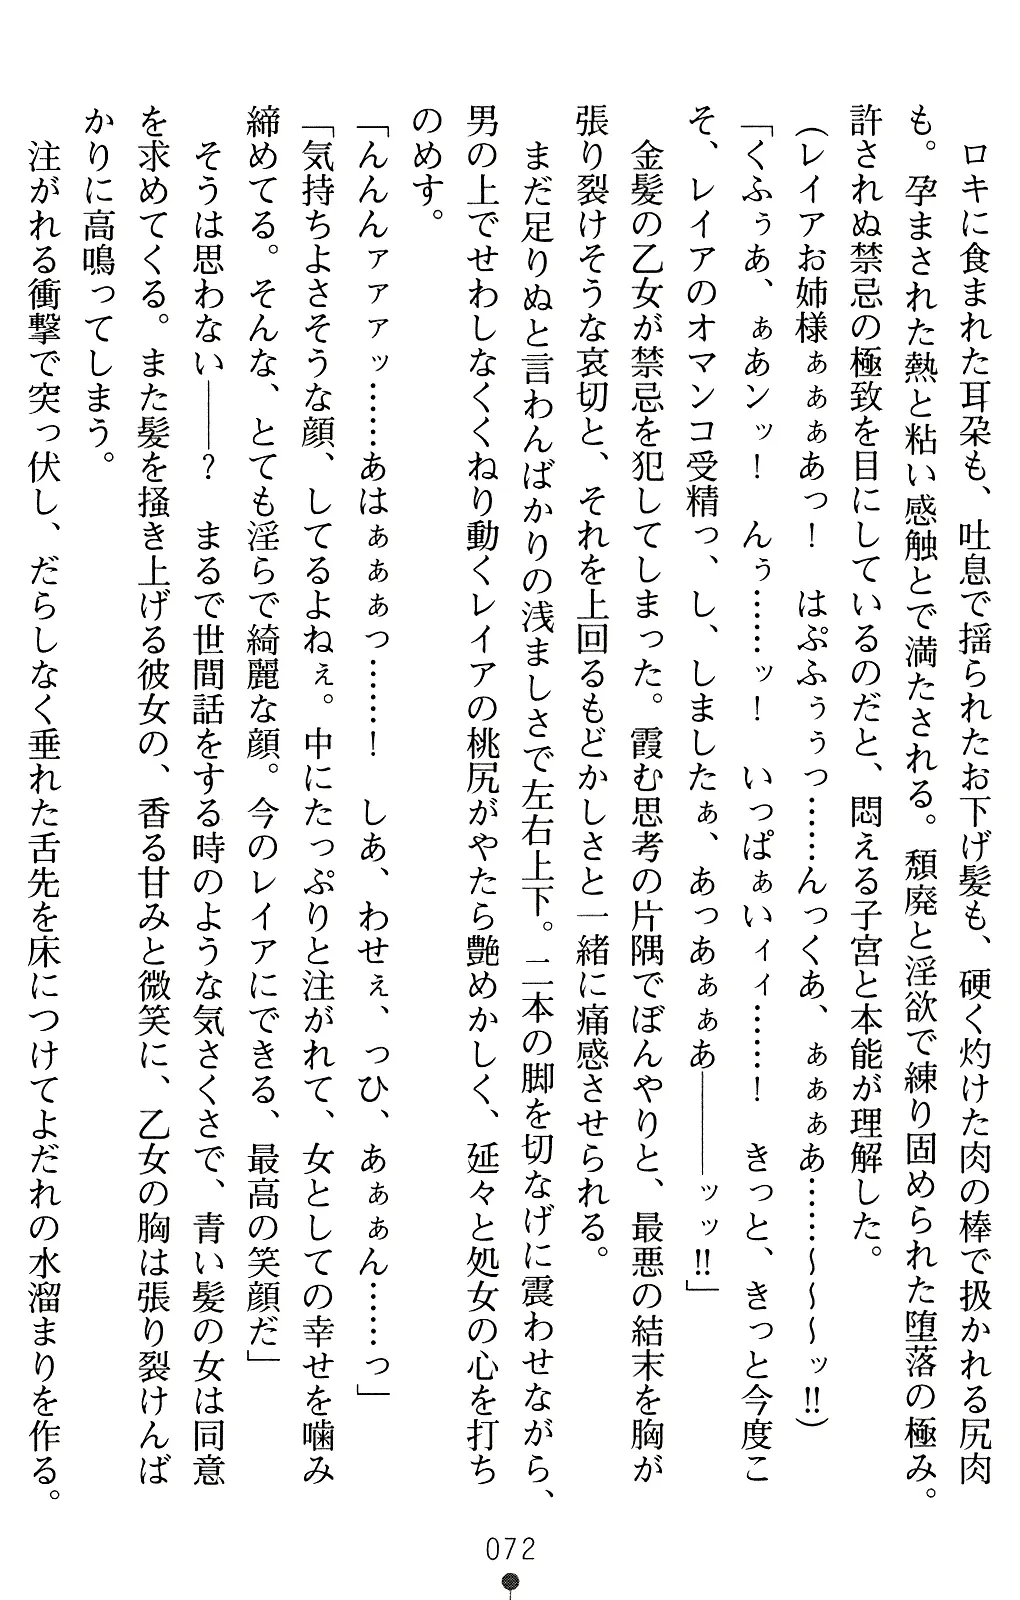 ロキに食まれた耳朶も、吐息で揺られたお下げ髪も、硬く灼けた肉の棒で扱かれる尻肉
も。孕まされた熱と粘い感触とで満たされる。頽廃と淫欲で練り固められた堕落の極み。
許されぬ禁忌の極致を目にしているのだと、悶える子宮と本能が理解した。
(レイアお姉様ぁぁぁあっ！　はぷふぅぅっ……んっくあ、ぁぁぁあ……～～～ッ‼)
「くふぅあ、ぁあンッ！　んぅ……ッ！　いっぱぁいィィ……！　きっと、きっと今度こ
そ、レイアのオマンコ受精っ、し、しましたぁ、あっあぁぁあ―――ッッ‼」
金髪の乙女が禁忌を犯してしまった。霞む思考の片隅でぼんやりと、最悪の結末を胸が
張り裂けそうな哀切と、それを上回るもどかしさと一緒に痛感させられる。
まだ足りぬと言わんばかりの浅ましさで左右上下。二本の脚を切なげに震わせながら、
男の上でせわしなくくねり動くレイアの桃尻がやたら艶めかしく、延々と処女の心を打ち
のめす。
「んんんァァァッ……あはぁぁぁっ……！　しあ、わせぇ、っひ、あぁぁん……っ」
「気持ちよさそうな顔、してるよねぇ。中にたっぷりと注がれて、女としての幸せを噛み
締めてる。そんな、とても淫らで綺麗な顔。今のレイアにできる、最高の笑顔だ」
そうは思わない――？　まるで世間話をする時のような気さくさで、青い髪の女は同意
を求めてくる。また髪を掻き上げる彼女の、香る甘みと微笑に、乙女の胸は張り裂けんば
かりに高鳴ってしまう。
注がれる衝撃で突っ伏し、だらしなく垂れた舌先を床につけてよだれの水溜まりを作る。
072